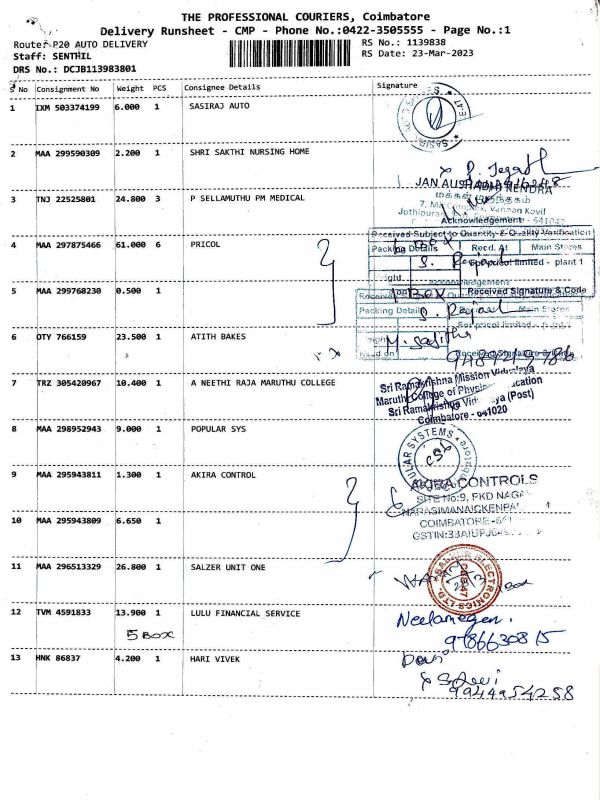 THE PROFESSIONAL COURIERS, Coimbatore
Delivery Runsheet - CMP - Phone No.:0422-3505555 - Page No.:1
Route: P20 AUTO DELIVERY
RS No.: 1139838
Staff: SENTHIL
RS Date: 23-Mar-2023
DRS No.: DCJB113983801
S No Consignment No Weight PCS Consignee Details Signature
1 IXM 503374199 6.000 1 SASIRAJ AUTO
2 MAA 299590309 2.200 1 SHRI SAKTHI NURSING HOME
3 TNJ 22525801 24.800 3 P SELLAMUTHU PM MEDICAL
Acknowledgement - 641047
Received Subject to Quantity & Quality Varification
4 MAA 297875466 61.000 6 PRICOL
Packing Details Recd. At Main Stores
S. Rajan
For pricol limited - plant 1
Received Signature & Code
5 MAA 299768230 0.500 1
1 Box
Packing Details Main Stores
S. Rajan
6 OTY 766159 23.500 1 ATITH BAKES
7 TRZ 305420967 10.400 1 A NEETHI RAJA MARUTHU COLLEGE
Sri Ramakrishna Mission Vidyalaya
Maruthi College of Physical Education
Sri Ramakrishna Vidyalaya (Post)
Coimbatore - 641020
8 MAA 298952943 9.000 1 POPULAR SYS
9 MAA 295943811 1.300 1 AKIRA CONTROL
AKIRA CONTROLS
SITE No:9, PKD NAGA
NARASIMANAICKENPA
10 MAA 295943809 6.650 1
COIMBATORE-641
11 MAA 296513329 26.800 1 SALZER UNIT ONE
12 TVM 4591833 13.900 1 LULU FINANCIAL SERVICE
5 BOX
Neelamegen.
9786630815
13 HNK 86837 4.200 1 HARI VIVEK
Devi
9944954258